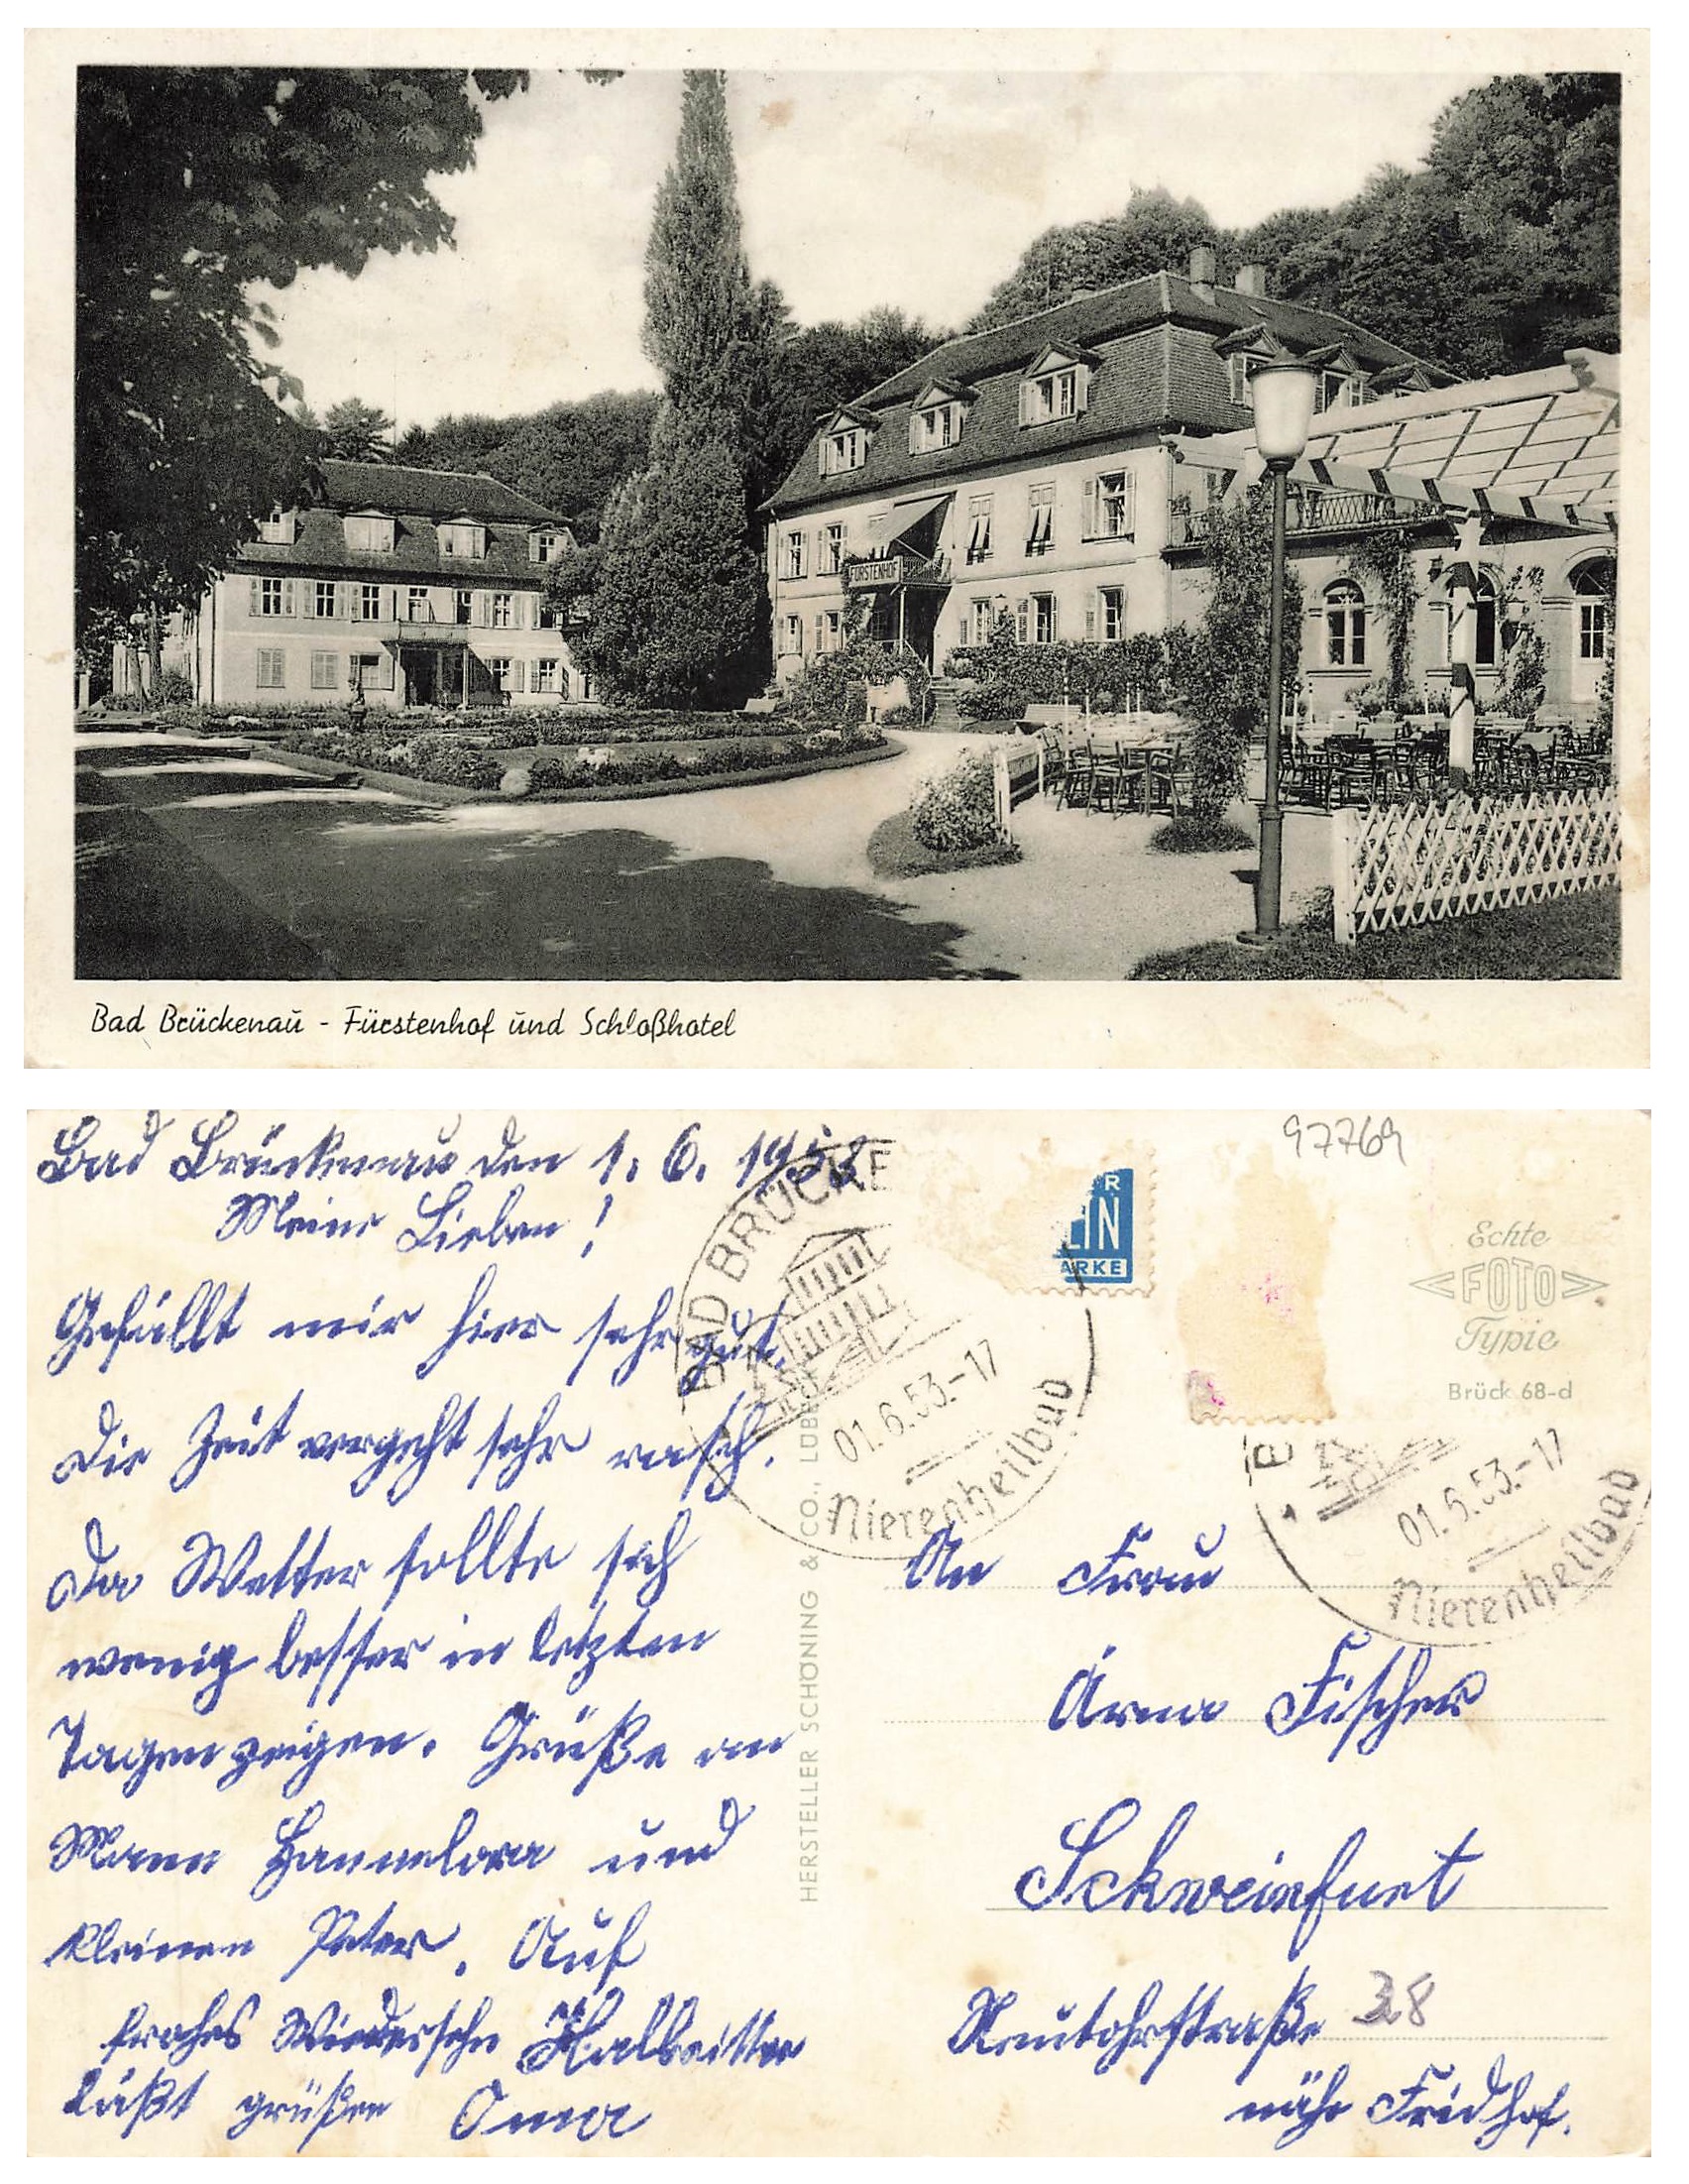 FÜRSTENHOF
Bad Brückenau - Fürstenhof und Schloßhotel
97769
Bad Brückenau den 1. 6. 1953
Meine Lieben!
Gefällt mir hier sehr gut.
Die Zeit vergeht sehr rasch.
Da Wetter sollte sich
wenig besser in letzten
Tagen zeigen. Grüße an
Mann Hannelore und
kleinen Peter. Auf
frohes Wiedersehn Halbritter
läßt grüßen Oma
BAD BRÜCKE
01.6.53.-17
Nierenheilbad
HERSTELLER SCHÖNING & CO., LÜBECK
R
LIN
ARKE
Echte
FOTO
Typie
Brück 68-d
E
01.6.53.-17
Nierenheilbad
An Frau
Fischer
Schweinfurt
Neutorstraße 38
nähe Friedhof.